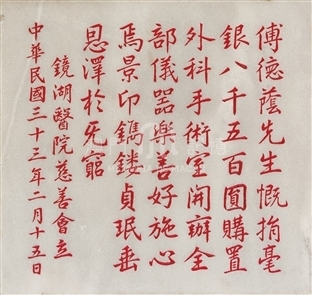 傅德蔭先生慨捐毫
銀八千五百圓購置
外科手術室開辦全
部儀器樂善好施心
焉景印鐫鏤貞珉垂
恩澤於无窮
鏡湖醫院慈善會立
中華民國三十三年二月十五日